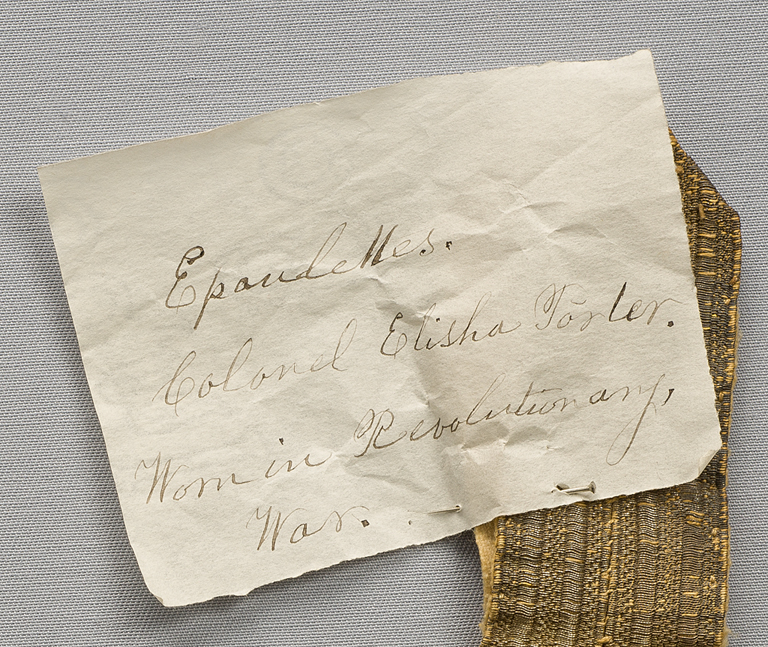 Epaulettes.
Colonel Elisha Porter.
Worn in Revolutionary,
War.